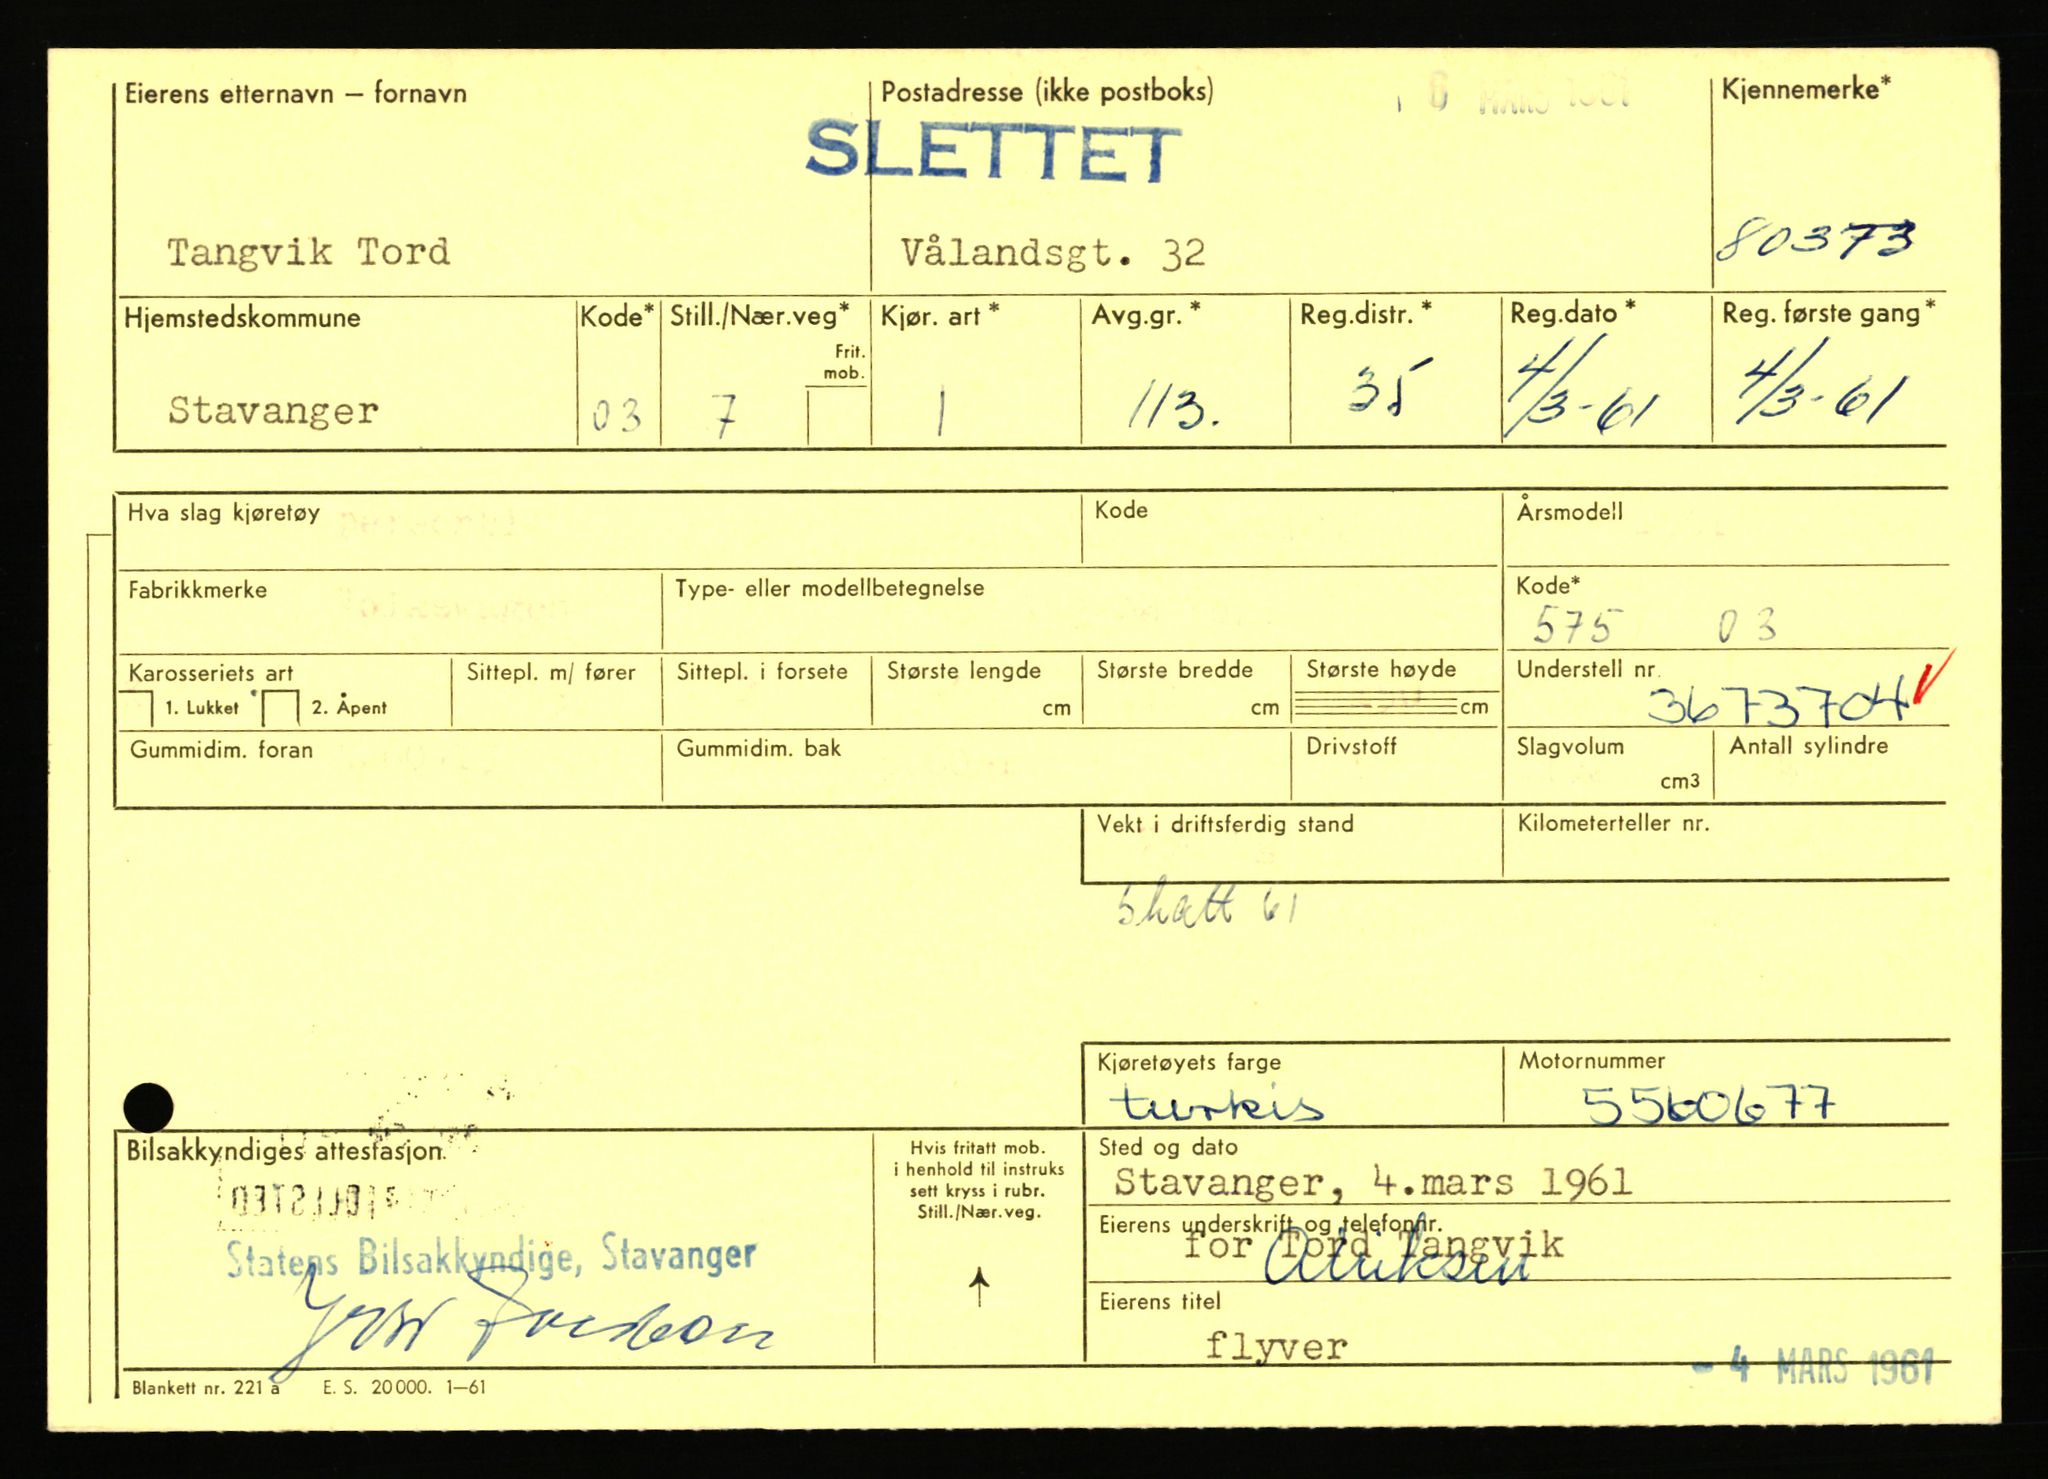 Eierens etternavn — fornavn Postadresse (ikke postboks) MARS 1961 Kjennemerke*
SLETTET
Tangvik Tord Vålandsgt. 32 80373
Hjemstedskommune Kode* Still./Nær.veg* Kjør. art* Avg.gr.* Reg.distr.* Reg.dato* Reg. første gang*
Frit.
mob.
Stavanger 03 7 1 113. 35 4/3-61 4/3-61
Hva slag kjøretøy Kode Årsmodell
Fabrikkmerke Type- eller modellbetegnelse Kode*
575 03
Karosseriets art Sittepl. m/ fører Sittepl. i forsete Største lengde Største bredde Største høyde Understell nr.
1. Lukket 2. Åpent cm cm cm 3673704
Gummidim. foran Gummidim. bak Drivstoff Slagvolum Antall sylindre
cm3
Vekt i driftsferdig stand Kilometerteller nr.
Skatt 61
Kjøretøyets farge Motornummer
turkis 5560677
Bilsakkyndiges attestasjon. Hvis fritatt mob. Sted og dato
i henhold til instruks
sett kryss i rubr.
Still./Nær.veg.
Stavanger, 4.mars 1961
Eierens underskrift og telefonnr.
for Tord Tangvik
Statens Bilsakkyndige, Stavanger
Eierens titel
flyver
- 4 MARS 1961
Blankett nr. 221 a E. S. 20000. 1—61